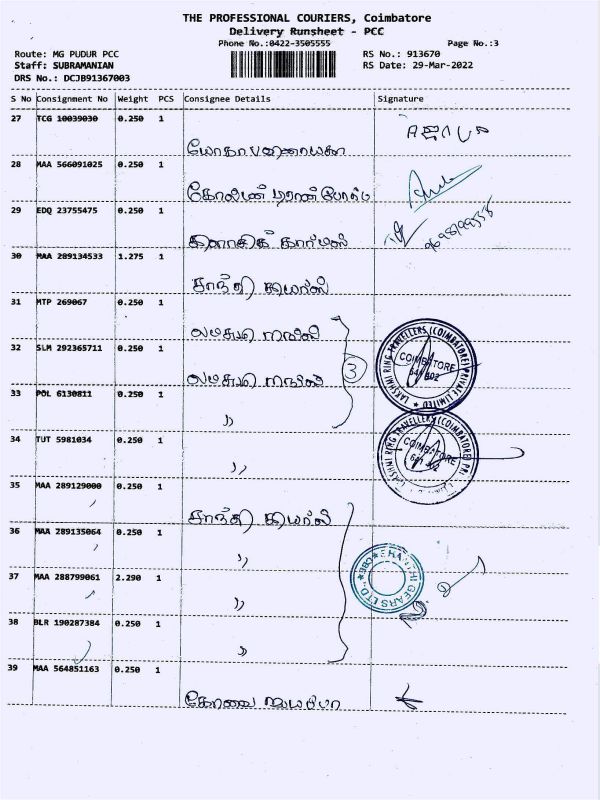 THE PROFESSIONAL COURIERS, Coimbatore
Delivery Runsheet - PCC
Phone No.:0422-3505555
Page No.:3
Route: MG PUDUR PCC
RS No.: 913670
Staff: SUBRAMANIAN
RS Date: 29-Mar-2022
DRS No.: DCJB91367003
S No Consignment No Weight PCS Consignee Details Signature
27 TCG 10039030 0.250 1
28 MAA 566091025 0.250 1
29 EDQ 23755475 0.250 1
30 MAA 289134533 1.275 1
சாந்தி கியர்ஸ்
31 MTP 269067 0.250 1
லட்சுமி ரிங்
32 SLM 292365711 0.250 1
லட்சுமி ரிங்
3
LAKSHMI RING TRAVELLERS (COIMBATORE) PRIVATE LIMITED
COIMBATORE
641 402
33 POL 6130811 0.250 1
"
34 TUT 5981034 0.250 1
"
LAKSHMI RING TRAVELLERS (COIMBATORE)
COIMBATORE
35 MAA 289129000 0.250 1
சாந்தி கியர்ஸ்
36 MAA 289135064 0.250 1
"
SHANTHI GEARS LTD CBE
37 MAA 288799061 2.290 1
"
38 BLR 190287384 0.250 1
"
39 MAA 564851163 0.250 1
கோவை